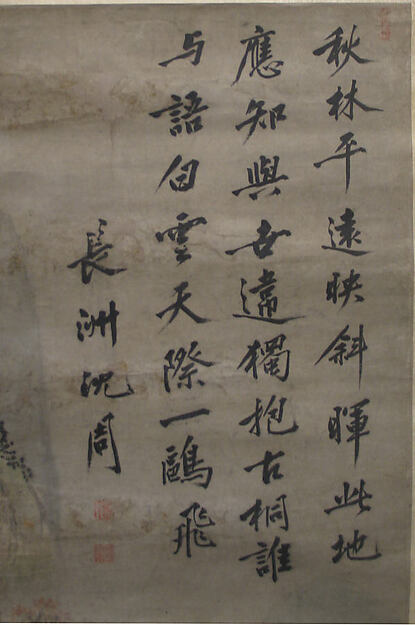 秋林平遠映斜暉此地
應知與世違獨抱古桐誰
与語白雲天際一鷗飛
長洲沈周